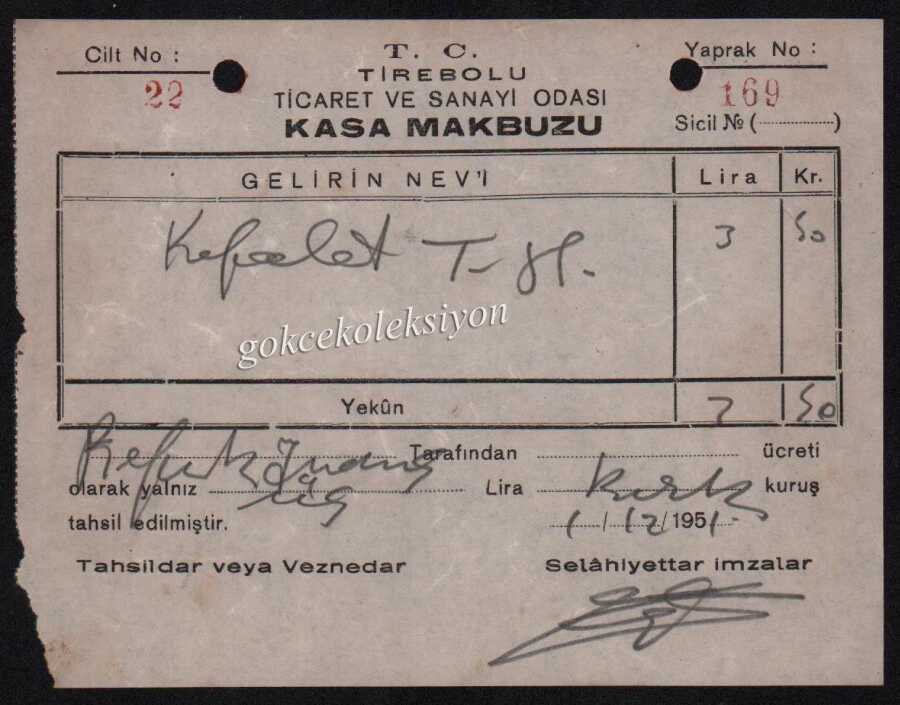 Cilt No :
22
T. C.
TİREBOLU
TİCARET VE SANAYİ ODASI
KASA MAKBUZU
Yaprak No :
169
Sicil № (..................)
GELİRİN NEV'İ Lira Kr.
Kefalet T. 3 50
gokcekoleksiyon
Yekûn 3 50
Tarafından ücreti
olarak yalnız üç Lira kuruş
tahsil edilmiştir. 1/12/1951
Tahsildar veya Veznedar Selâhiyettar imzalar